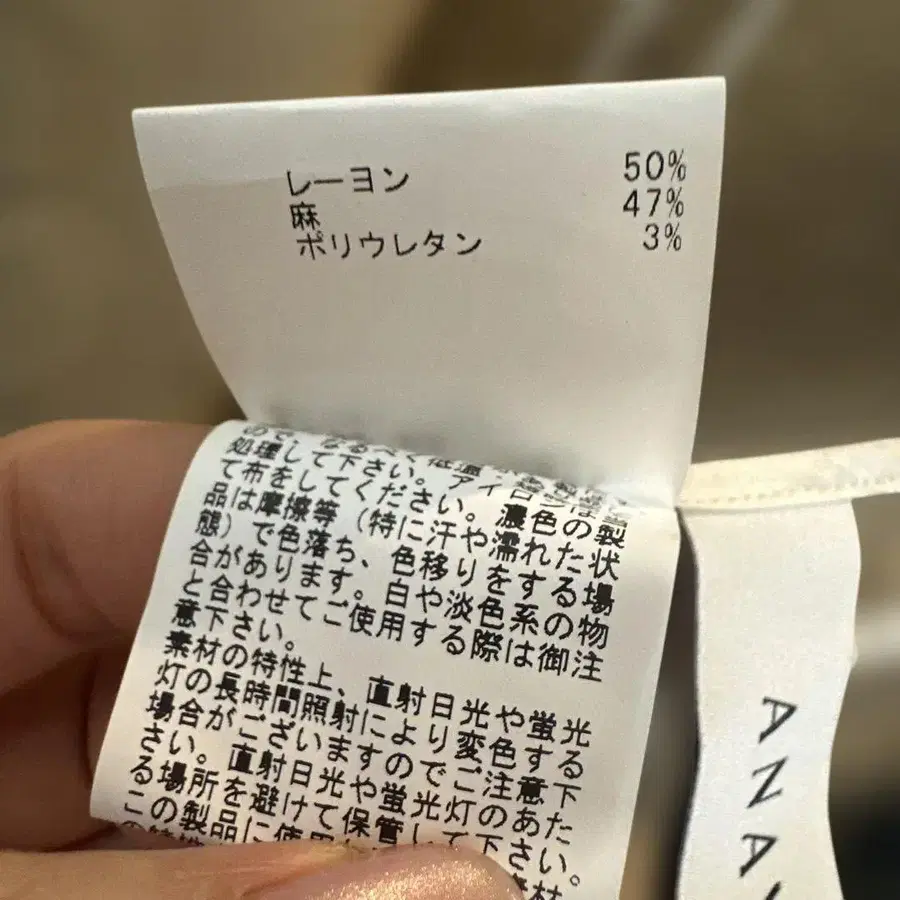 レーヨン 50%
麻 47%
ポリウレタン 3%
処理して下さい。
て布をしてください。濃色の製
品は摩擦等（特に汗や濡れた状
態）で色落ち、色移りをする場
合があります。白や淡色系の物
と合わせてご使用する際は御注
意下さい。
素材の特性上、直射日光や蛍光
灯の長時間照射により変色する
場合がございますのでご注意下
さい。直射日光や蛍光灯のあた
る場所を避けて保管して下さい。
この製品に使用
ANA